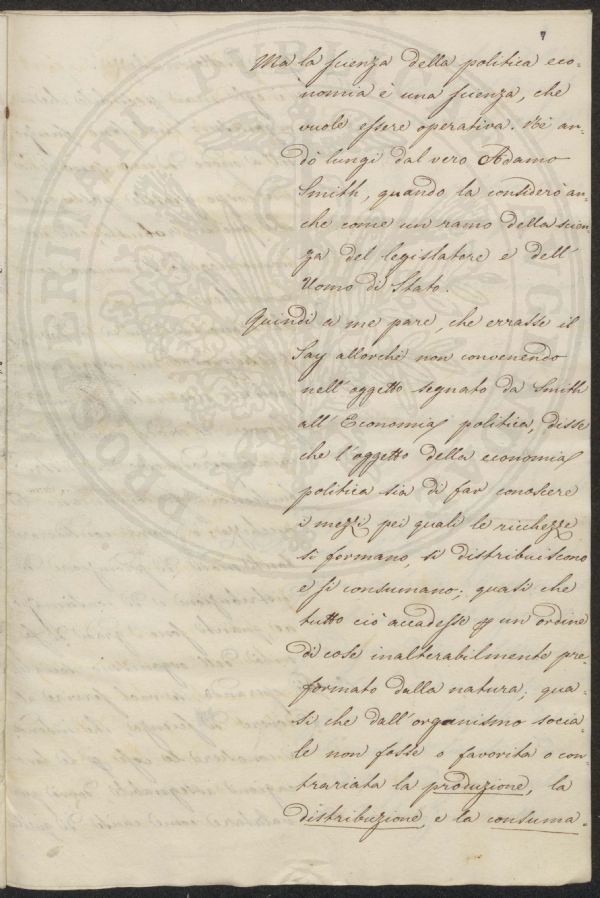 7
Ma la scienza della politica eco-
nomia è una scienza, che
vuole essere operativa. Nè an-
dò lungi dal vero Adamo
Smith, quando la considerò an-
che come un ramo della scien-
za del legislatore e dell'
Uomo di Stato.
Quindi a me pare, che errasse il
Say allorchè non convenendo
nell'oggetto segnato da Smith
all'Economia politica, disse
che l'oggetto della economia
politica sia di far conoscere
i mezzi pei quali le ricchezze
si formano, si distribuiscono
e si consumano; quasi che
tutto ciò accadesse p un ordine
di cose inalterabilmente pre-
formato dalla natura; qua-
si che dall'organismo socia-
le non fosse o favorita o con-
trariata la produzione, la
distribuzione, e la consuma-